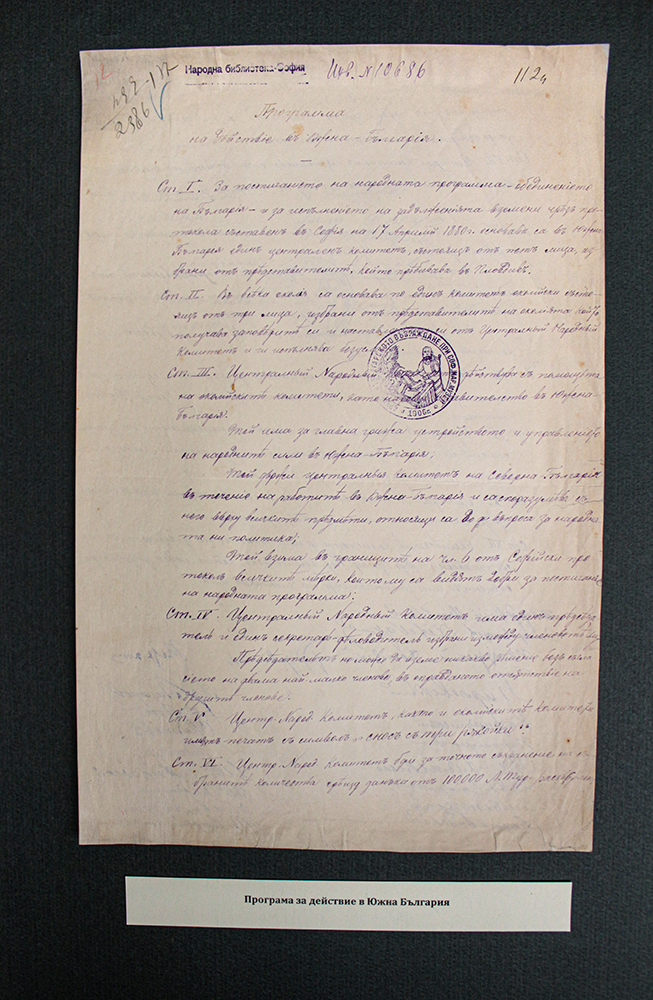 Народна библиотека-София Инв. № 10686
112
Программа
на Действие въ Южна-Българія.
Ст. I. За постиганьето на народната программа - обединеніето
на Българія - и за испълнението на задълженіята вземени чрѣзъ про-
токола съставенъ въ Софія на 17 Априлій 1880 г. основава са въ Южна
Българія единъ централенъ комитетъ, състоящъ отъ петь лица, из-
брани отъ прѣдставителитѣ, който прѣбивава въ Пловдивъ.
Ст. II. Въ всѣка околія са основава по единъ комитетъ околийски състо-
ящъ отъ три лица, избрани отъ прѣдставителитѣ на околіята който
получава заповѣдитѣ си и наставленіята си отъ Централный Народный
Комитетъ и ги испълнява
Ст. III. Централный Народный дѣйствува съ помощьта
на околийскитѣ комитети, като правителство въ Южна-
Българія.
Той има за главна грижа устройството и управленіето
на народнитѣ сили въ Южна-Българія;
Той държи централныя комитетъ на Северна Българія
въ теченіе на работитѣ въ Южна-Българія и са споразумѣва съ
него върху всичкитѣ прѣдмѣти, относящи са до въпроса за народна-
та ни политика;
Той взима въ границитѣ на чл. 6 отъ Софийски про-
токолъ всичкитѣ мѣрки, които му са видятъ добри за постиганье
на народната программа.
Ст. IV. Централный Народный Комитетъ има единъ прѣдсѣда-
тель и единъ секретарь-дѣловодитель избрани измежду членоветѣ му
Прѣдсѣдательтъ не може да вземе никакво рѣшеніе безъ съгла-
сіето на двама най-малко членове въ оправданото отсѫтствие на
членове.
Ст. V Центр. Народ. Комитетъ, както и околийскитѣ комитети
иматъ печатъ съ символъ „снопъ съ три рѫкойки“
Ст. VI. Центр. Народ. Комитетъ бди за точното събираніе на съ-
бранитѣ количества срѣщу заемъ отъ 100000
Програма за действие в Южна България